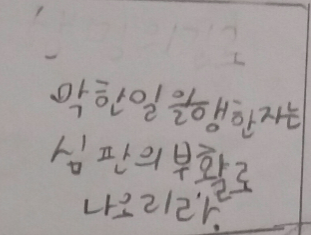 악한일을행한자는
심판의부활로
나오리라.